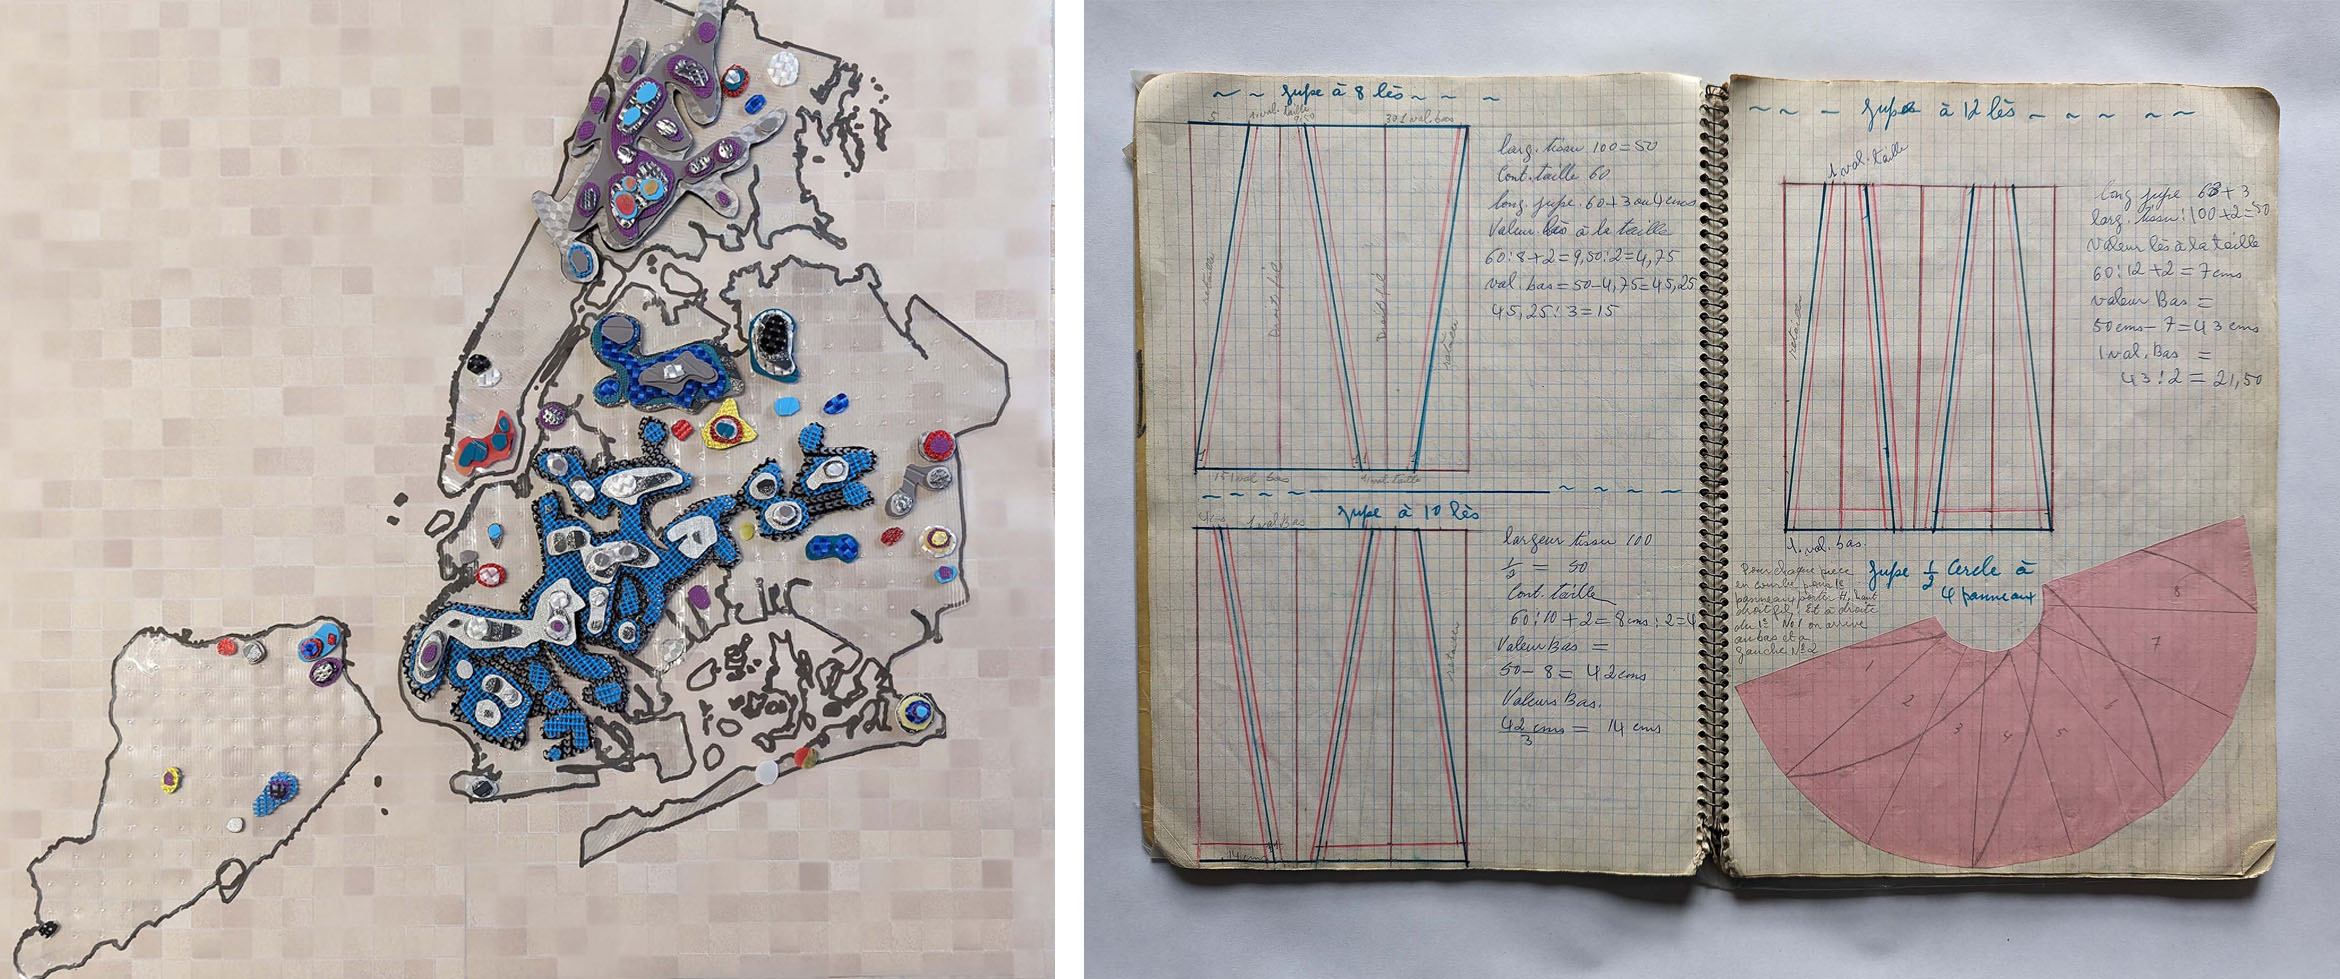 jupe à 8 lès
5 1 val. taille 9,50 30 1 val. bas
larg. tissu 100=50
Cont. taille 60
long. jupe. 60+3 ou 4 cms
Valeur lès à la taille
60:8+2=9,50:2=4,75
val. bas=50-4,75=45,25
45,25:3=15
retailler
Droit fil
Droit fil
15 1 val bas 1 val. taille
jupe à 10 lès
1 val. Bas
largeur tissu 100
1/2 = 50
Cont. taille
60:10+2=8cms:2=4
Valeur Bas =
50-8=42cms
Valeurs Bas.
42 cms/3 = 14 cms
14 cms
jupe à 12 lès
1 val. taille
long jupe 63+3
larg. tissu:100+2=50
Valeur lès à la taille
60:12+2=7cms
valeur Bas =
50cms-7=43 cms
1 val. Bas =
43:2=21,50
retailler
1. val. bas.
jupe 1/2 Cercle à
4 panneaux
Pour chaque pièce
en courbe pour le
droit fil. Et à droite
du 1er No 1 on arrive
au bas et a
gauche No 2
1 2 3 4 5 6 7 8